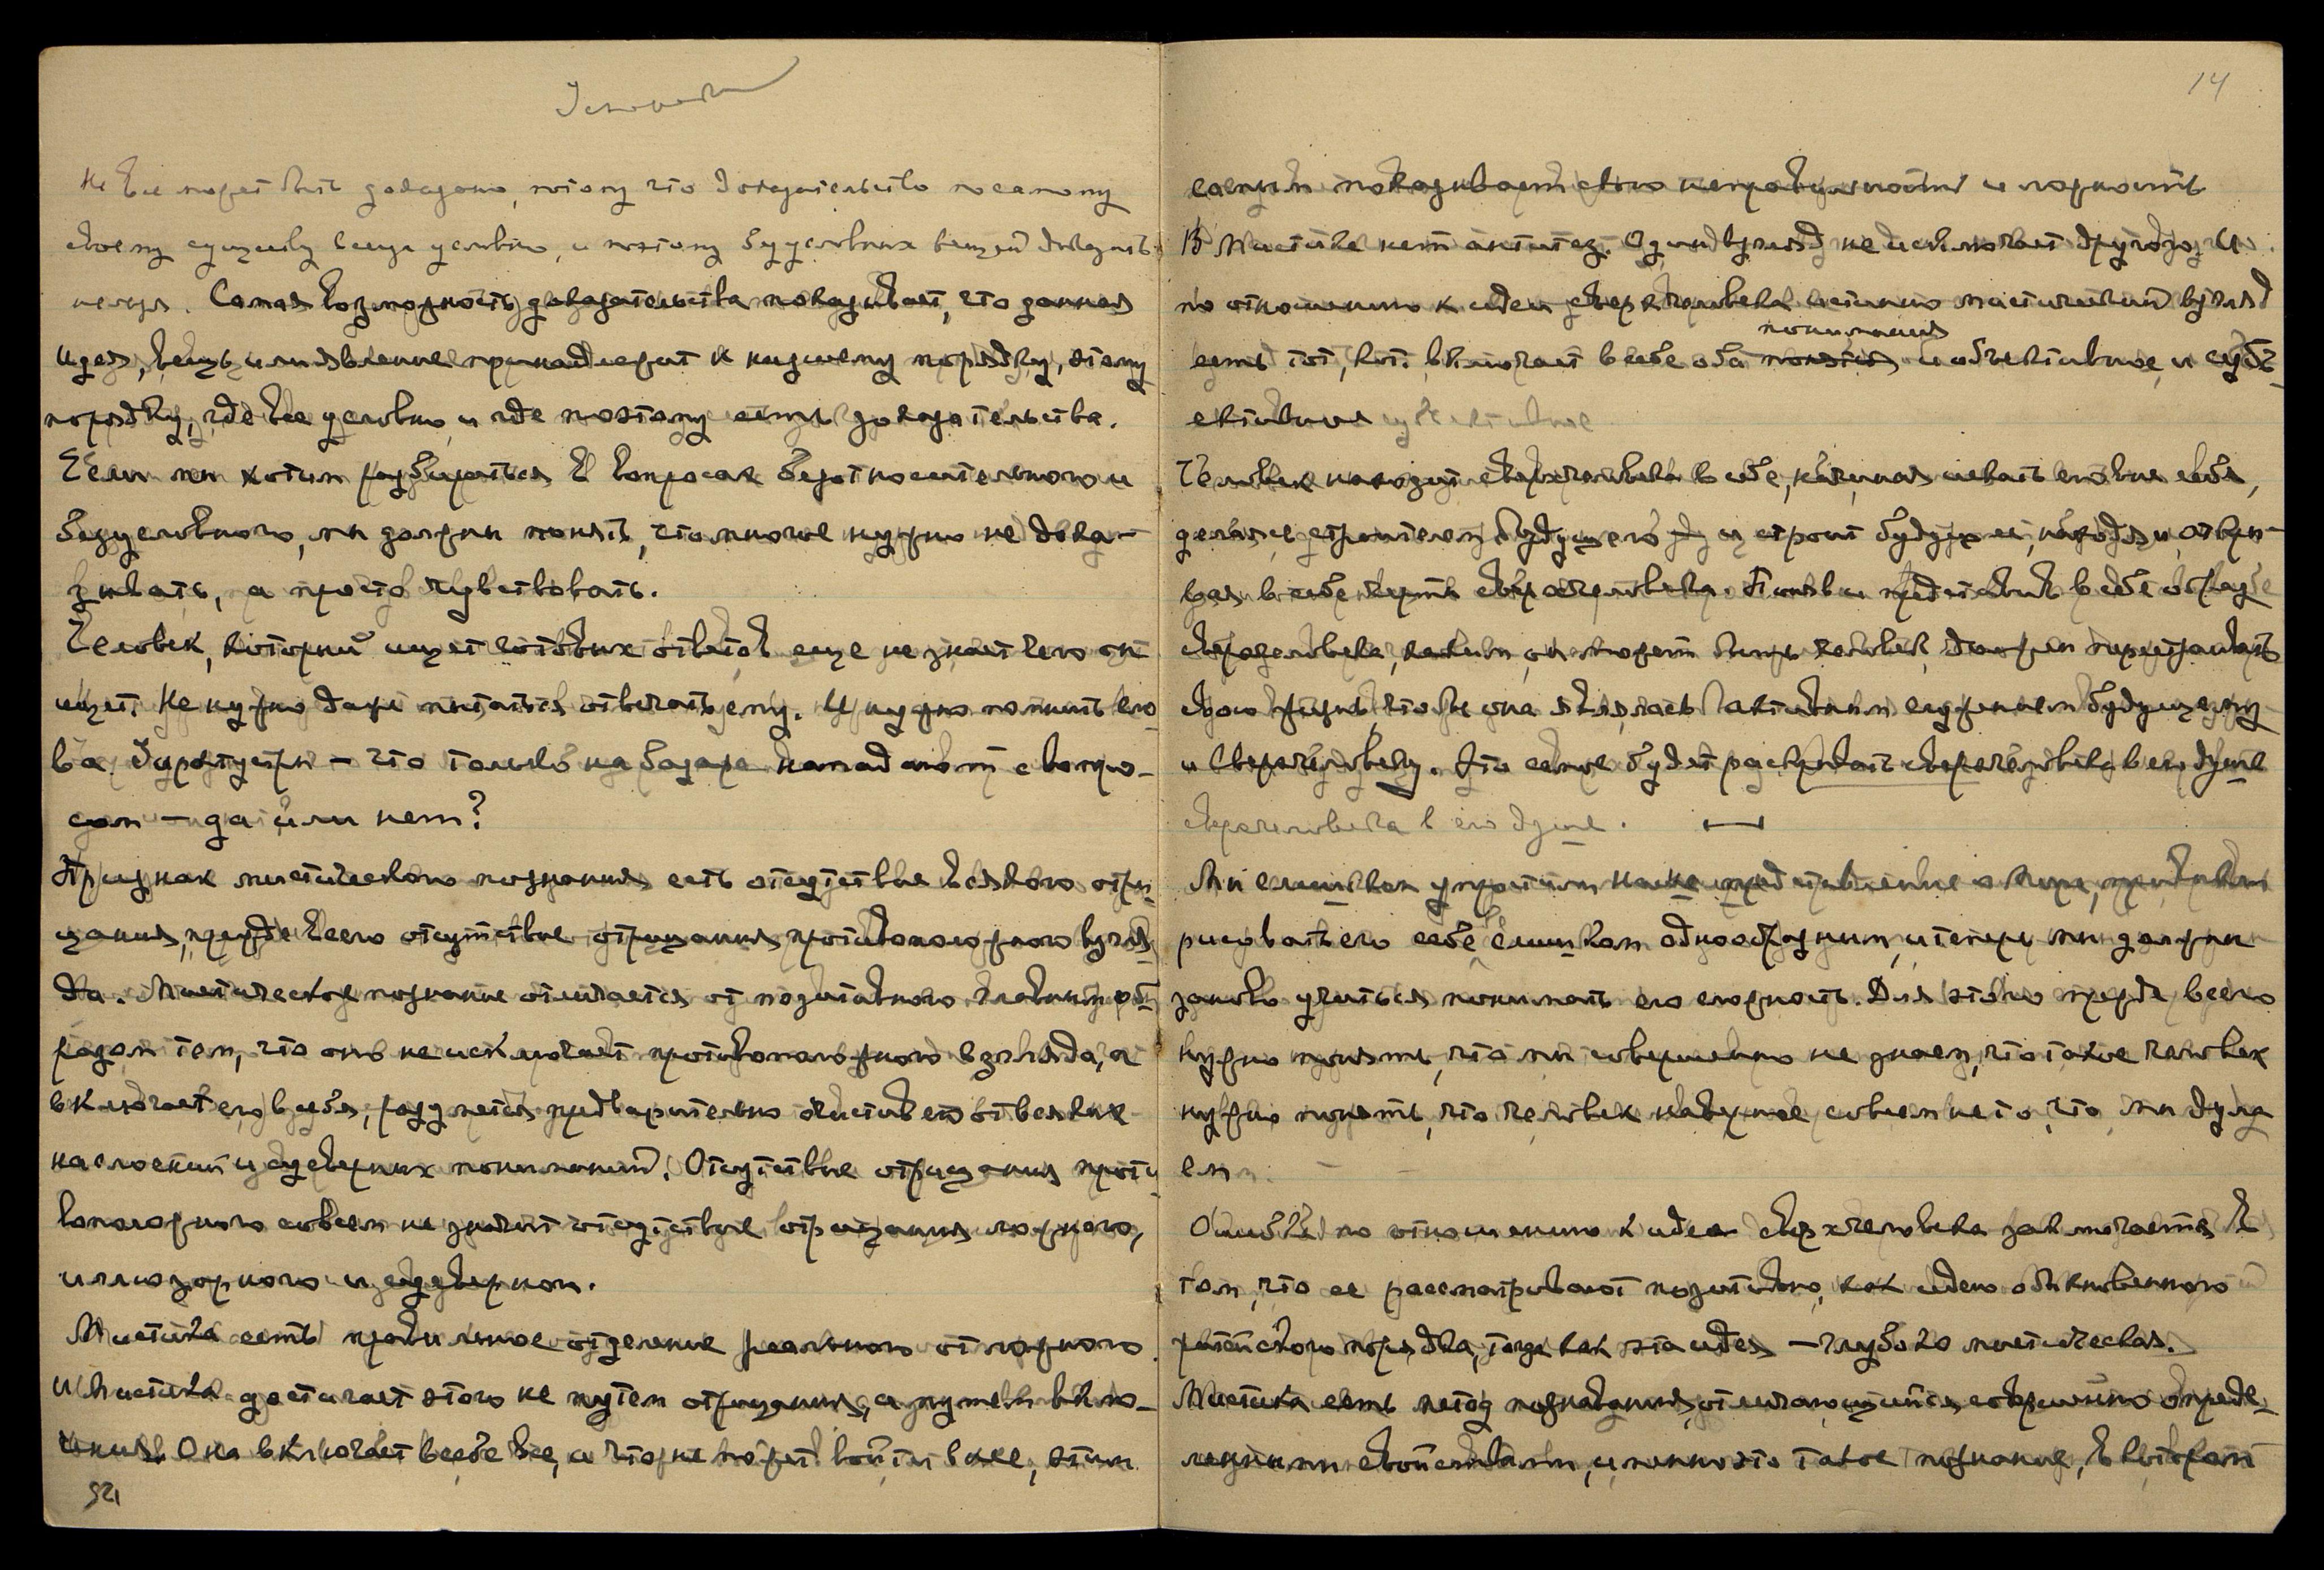 Не все может быть доказано, потому что доказательство по самому
своему существу вещь условно, и поэтому безусловных вещей доказать
нельзя. Самая возможность доказательства показывает, что данная
идея, вещь или явление принадлежит к низшему порядку, этому
порядку, где все условно и где поэтому есть доказательства.
Если мы хотим разбираться в вопросах безотносительного и
безусловного, мы должны понять, что многое нужно не дока-
зывать, а просто чувствовать.
Человек, который ищет готовых ответов еще не знает чего он
ищет. Не нужно даже пытаться отвечать ему. И нужно помнить сло
ва Заратустры – что только на базаре нападают с вопро-
сом – да или нет?
Признак мистического познания есть отсутствие всякого отри
цания, прежде всего отсутствие отрицания противоположного взгля
да. Мистическое познание отличается от позитивного главным об
разом тем, что оно не исключает противоположного взгляда, а
включает его в себя, разумеется предварительно очистив его от всяких
наслоений и суеверных пониманий. Отсутствие отрицания проти
воположного совсем не значит отсутствие отрицания ложного,
иллюзорного и суеверного.
Мистика есть правильное отделение реального от ложного
и мистика достигает этого не путем отрицания, а путем вклю-
чения. Она включает в себе все, и что не может войти в нее, этим
14
самым показывает свою неправильность и ложность
В мистике нет антитез. Один взгляд не исключает другого. И
по отношению к идее сверхчеловека истинно мистический взгляд
понимания
есть тот, кот. включает в себе оба понятия и объективное, и субъ
ективное субъективное
Человек находит сверхчеловека в себе, начиная искать его вне себя,
делаясь строителем будущего и строит будущее, находя и откры-
вая в себе черты сверхчеловека. Поняв и представив в себе образ
сверхчеловека, каким он может быть человек должен перестраивать
свою жизнь, чтобы она являлась активным служением будущему
и сверхчеловеку. Это самое будет раскрывать сверхчеловека в его душе
сверхчеловека в его душе.
Мы слишком упростили наше представление о мире, привыкли
рисовать его себе слишком однообразным, и теперь мы должны
заново учиться понимать его сложность. Для этого прежде всего
нужно понять, что мы совершенно не знаем, что такое человек
нужно понять, что человек наверное совсем не то, что мы дума
ем.
Ошибка по отношению к идее сверхчеловека заключается в
том, что ее рассматривают позитивно, как идею обыкновенного
житейского порядка, тогда как эта идея – глубоко мистическая.
Мистика есть метод познавания, отличающийся совершенно опреде
ленными свойствами, именно это такое познание, в котором